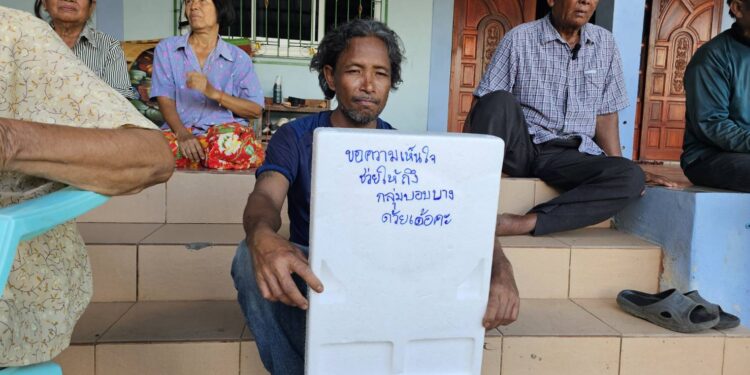 ขอความเห็นใจ
ช่วยให้ถึง
กลุ่มบอบบาง
ด้วยเด้อคะ